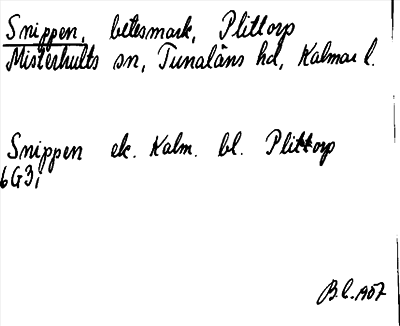 Snippen, betesmark, Plittorp
Misterhults sn, Tunaläns hd, Kalmar l.
Snippen ek. Kalm. bl. Plittorp
6G3i
B.L. 1957